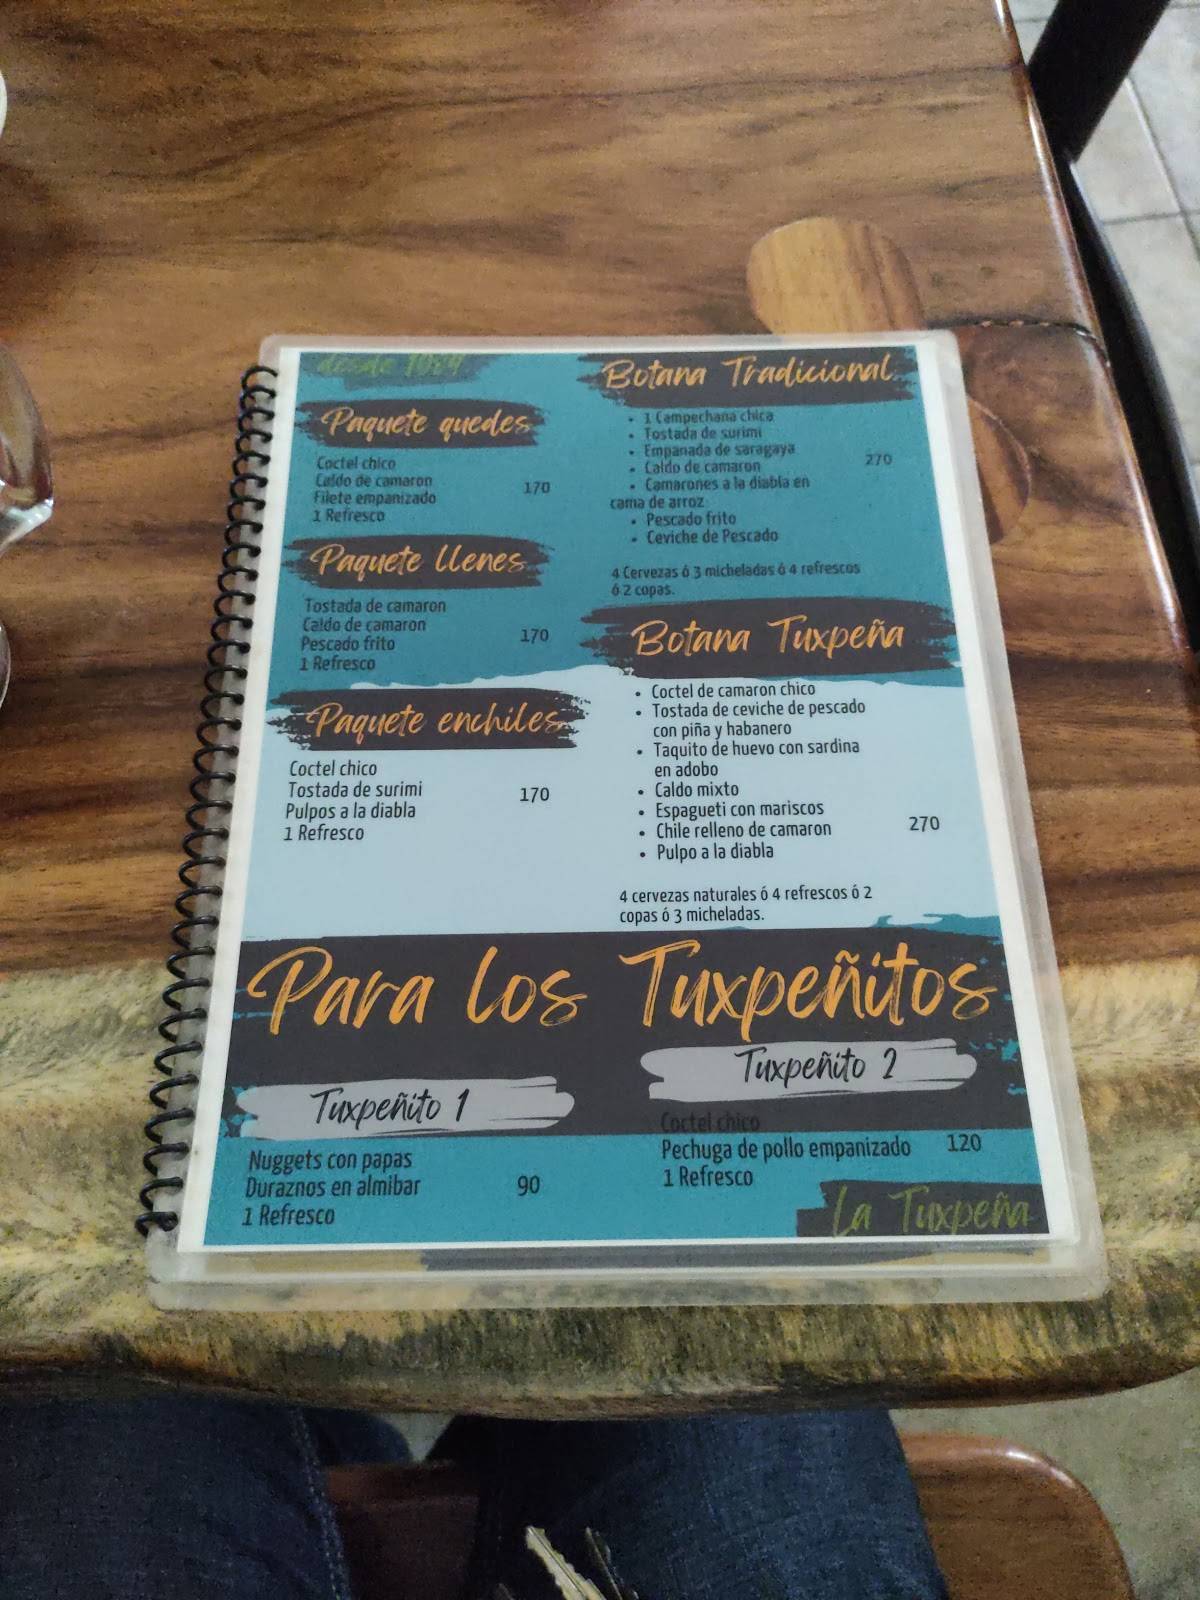 desde 1984
Paquete quedes
Coctel chico
Caldo de camaron
Filete empanizado
1 Refresco
170
Paquete llenes
Tostada de camaron
Caldo de camaron
Pescado frito
1 Refresco
170
Paquete enchiles
Coctel chico
Tostada de surimi
Pulpos a la diabla
1 Refresco
170
Botana Tradicional
• 1 Campechana chica
• Tostada de surimi
• Empanada de saragaya
• Caldo de camaron
• Camarones a la diabla en
cama de arroz
• Pescado frito
• Ceviche de Pescado
270
4 Cervezas ó 3 micheladas ó 4 refrescos
ó 2 copas.
Botana Tuxpeña
• Coctel de camaron chico
• Tostada de ceviche de pescado
con piña y habanero
• Taquito de huevo con sardina
en adobo
• Caldo mixto
• Espagueti con mariscos
• Chile relleno de camaron
• Pulpo a la diabla
270
4 cervezas naturales ó 4 refrescos ó 2
copas ó 3 micheladas.
Para los Tuxpeñitos
Tuxpeñito 1
Nuggets con papas
Duraznos en almibar
1 Refresco
90
Tuxpeñito 2
Coctel chico
Pechuga de pollo empanizado
1 Refresco
120
La Tuxpeña